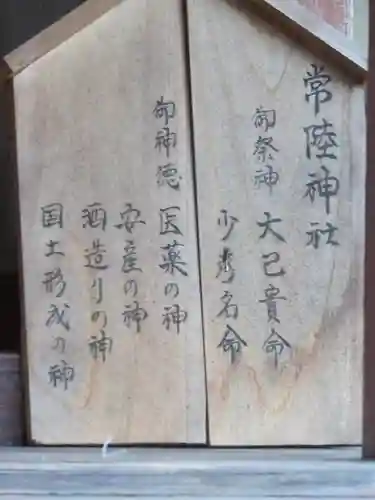 常陸神社
御祭神 大己貴命
少彦名命
御神徳 医薬の神
安産の神
酒造りの神
国土形成の神